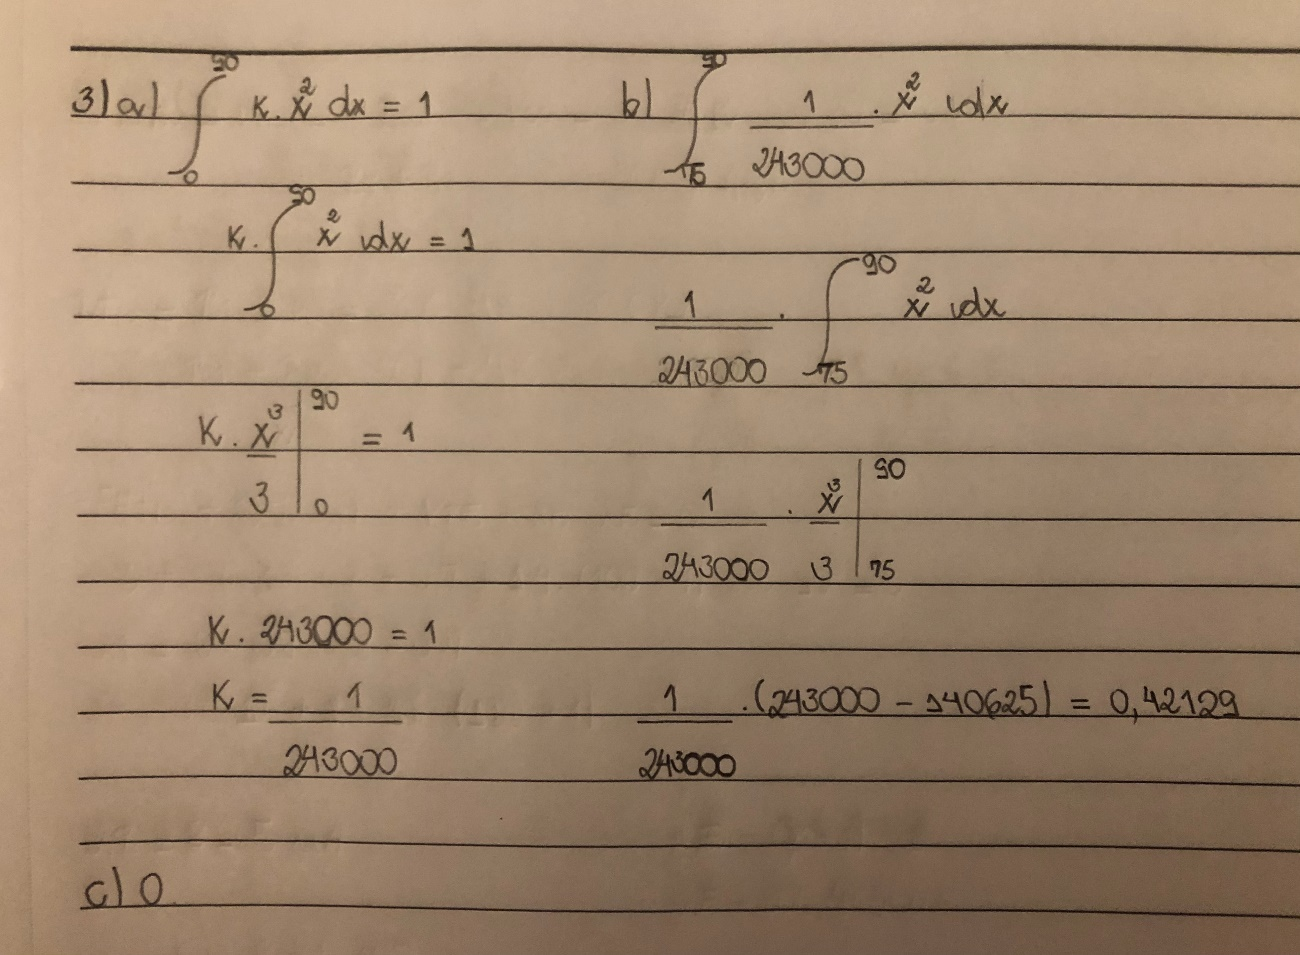 3) a) ∫₀⁹⁰ K. x² dx = 1
K. ∫₀⁹⁰ x² dx = 1
K. x³/3 |₀⁹⁰ = 1
K. 243000 = 1
K = 1/243000
b) ∫₇₅⁹⁰ 1/243000 . x² dx
1/243000 . ∫₇₅⁹⁰ x² dx
1/243000 . x³/3 |₇₅⁹⁰
1/243000 .(243000 - 140625) = 0,42129
c) 0